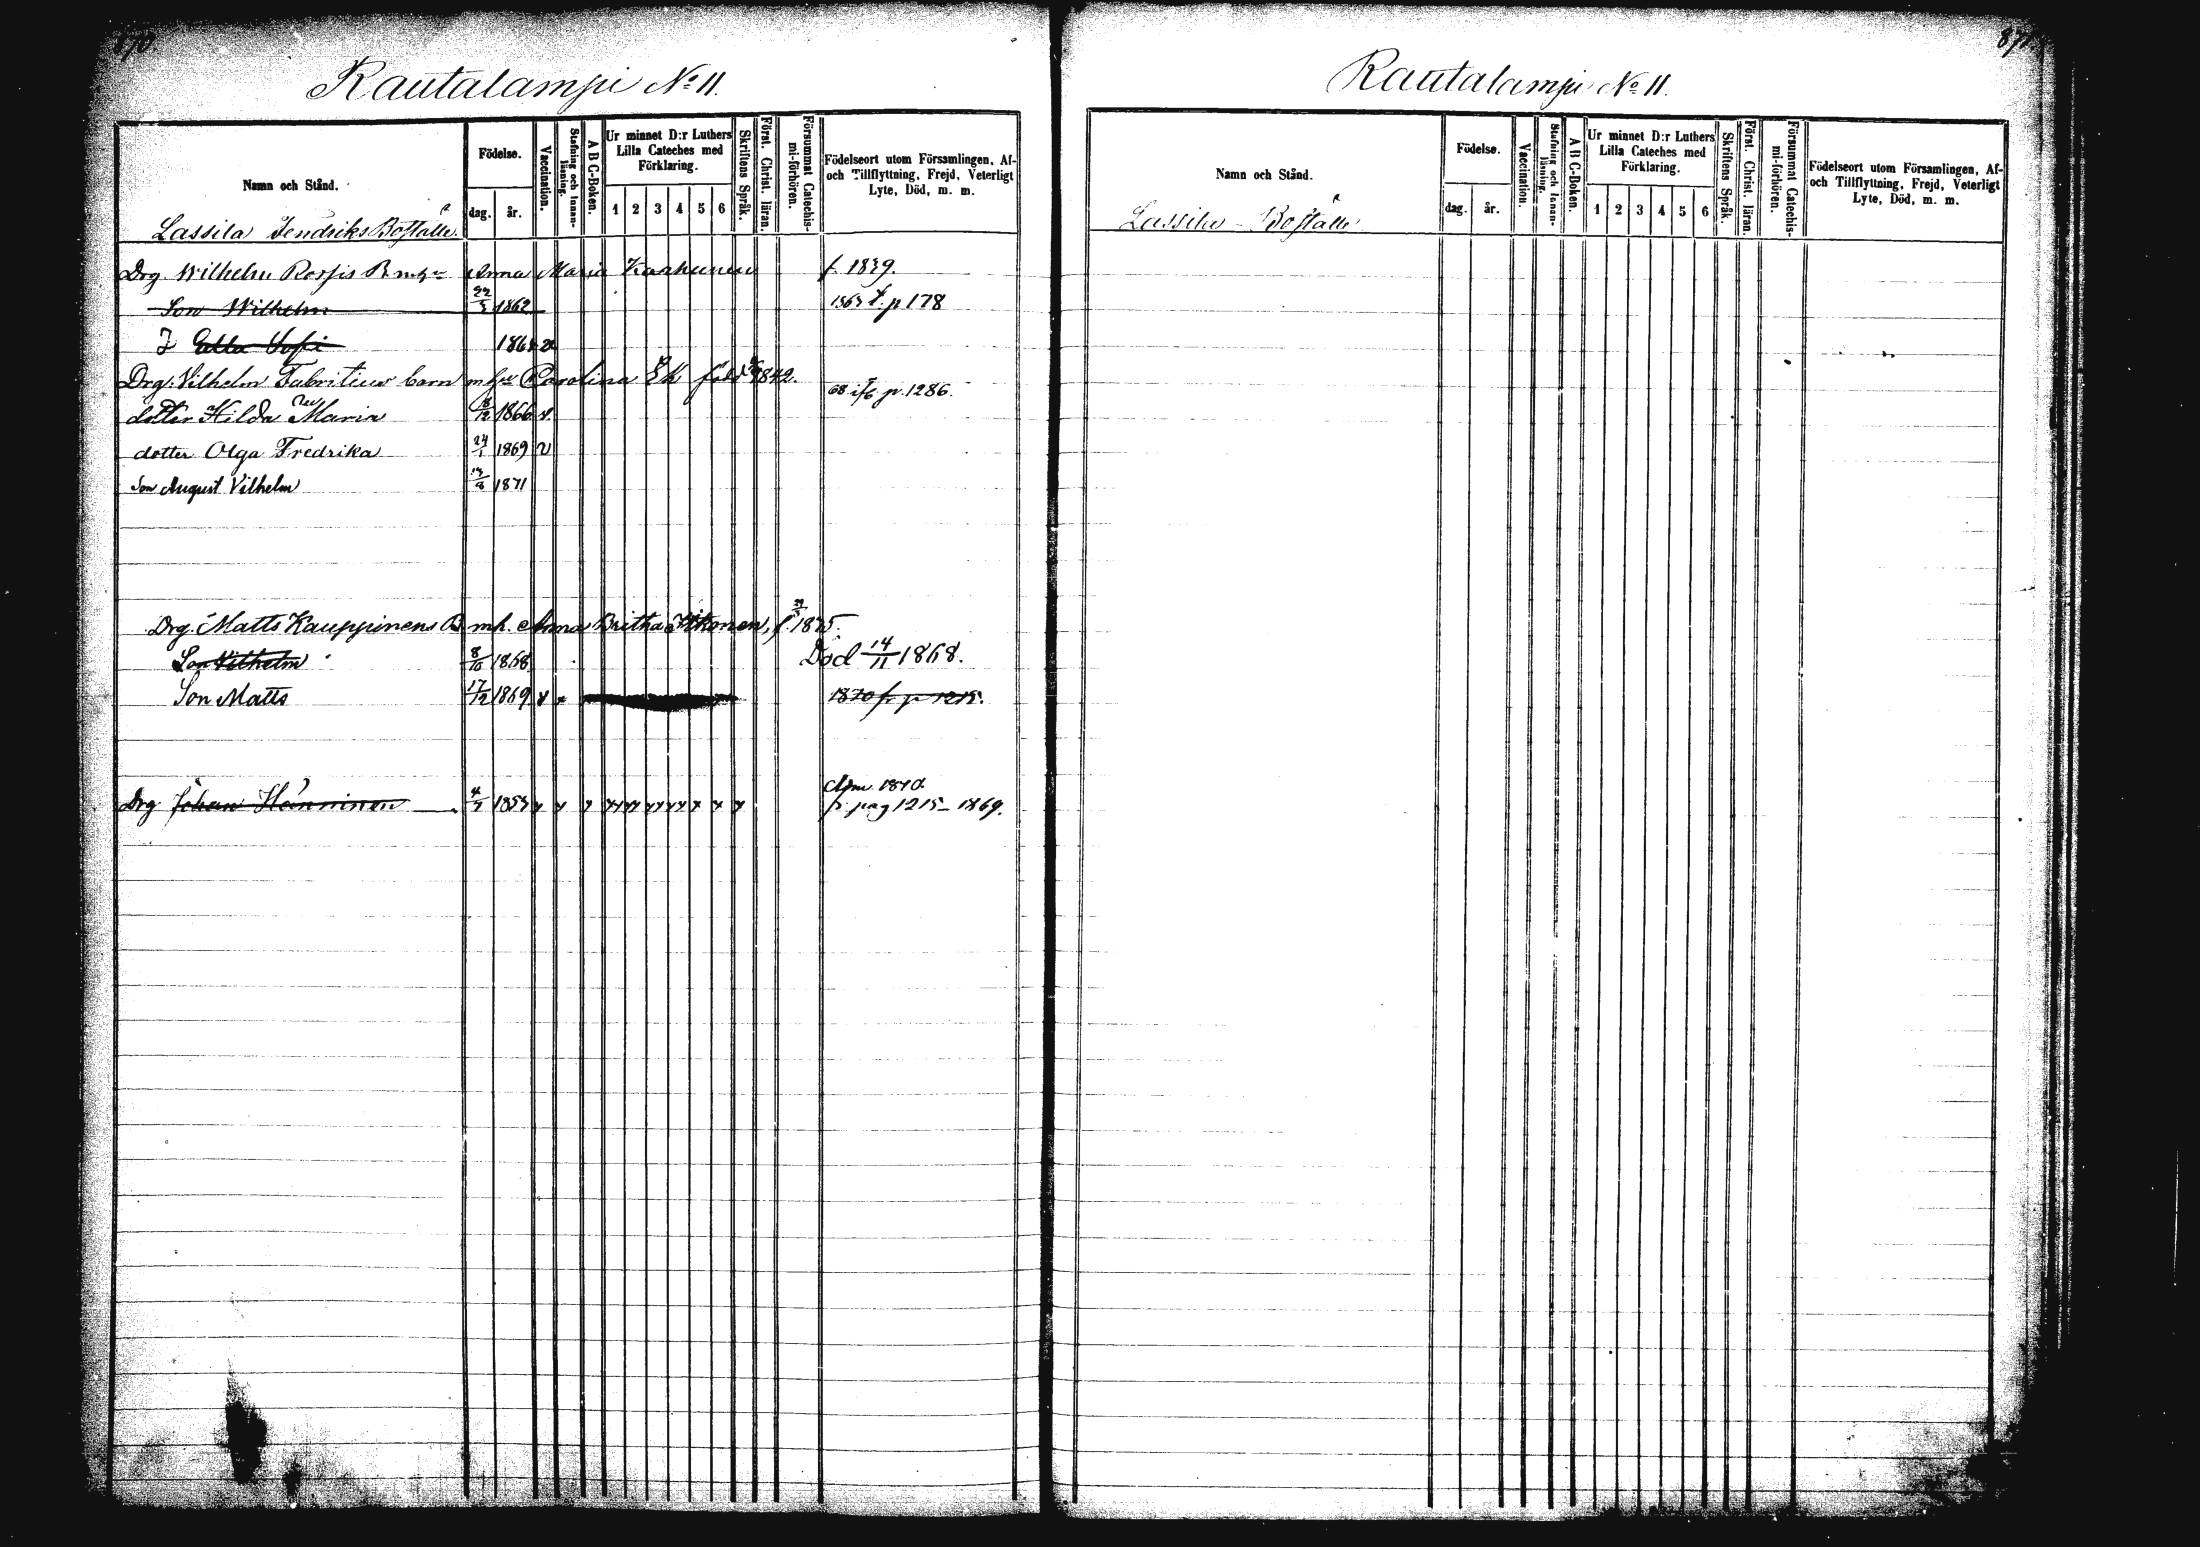 870.
Rautalampi No 11.
Namn och Stånd.
Födelse.
dag. år.
Vaccination.
Stafning och Innan-läsning.
A B C-Boken.
Ur minnet D:r Luthers Lilla Cateches med Förklaring.
1 2 3 4 5 6
Skriftens Språk.
Först. Christ. läran.
Försummat Catechis-mi-förhören.
Födelseort utom Församlingen, Af- och Tillflyttning, Frejd, Veterligt Lyte, Död, m. m.
Lassila Jendriks Boställe
Drg Wilhelm Rossis B mh Anna Maria Karhunen f. 1839.
Son Wilhelm 1862 p 178
Sofi
Drg. Vilhelm Fabritius barn mh Carolina Ek född 1842.
68 i/6 p. 1286.
dotter Hilda Maria 1866 v.
dotter Olga Fredrika 24/1 1869 v
Son August Vilhelm 1871
Drg. Matts Kauppinens B mh. Anna Britha Itkonen, f. 1835.
Son Vilhelm 8/10 1868 Död 14/11 1868.
Son Matts 17/12 1869 x x 1870 fr p 1215.
Drg Johan Hänninen 1853 x x x xx xx xx xx x x x
1870.
fr. pag 1215 - 1869.
871.
Rautalampi No 11.
Namn och Stånd.
Födelse.
dag. år.
Vaccination.
Stafning och Innan-läsning.
A B C-Boken.
Ur minnet D:r Luthers Lilla Cateches med Förklaring.
1 2 3 4 5 6
Skriftens Språk.
Först. Christ. läran.
Försummat Catechis-mi-förhören.
Födelseort utom Församlingen, Af- och Tillflyttning, Frejd, Veterligt Lyte, Död, m. m.
Lassila - Boställe